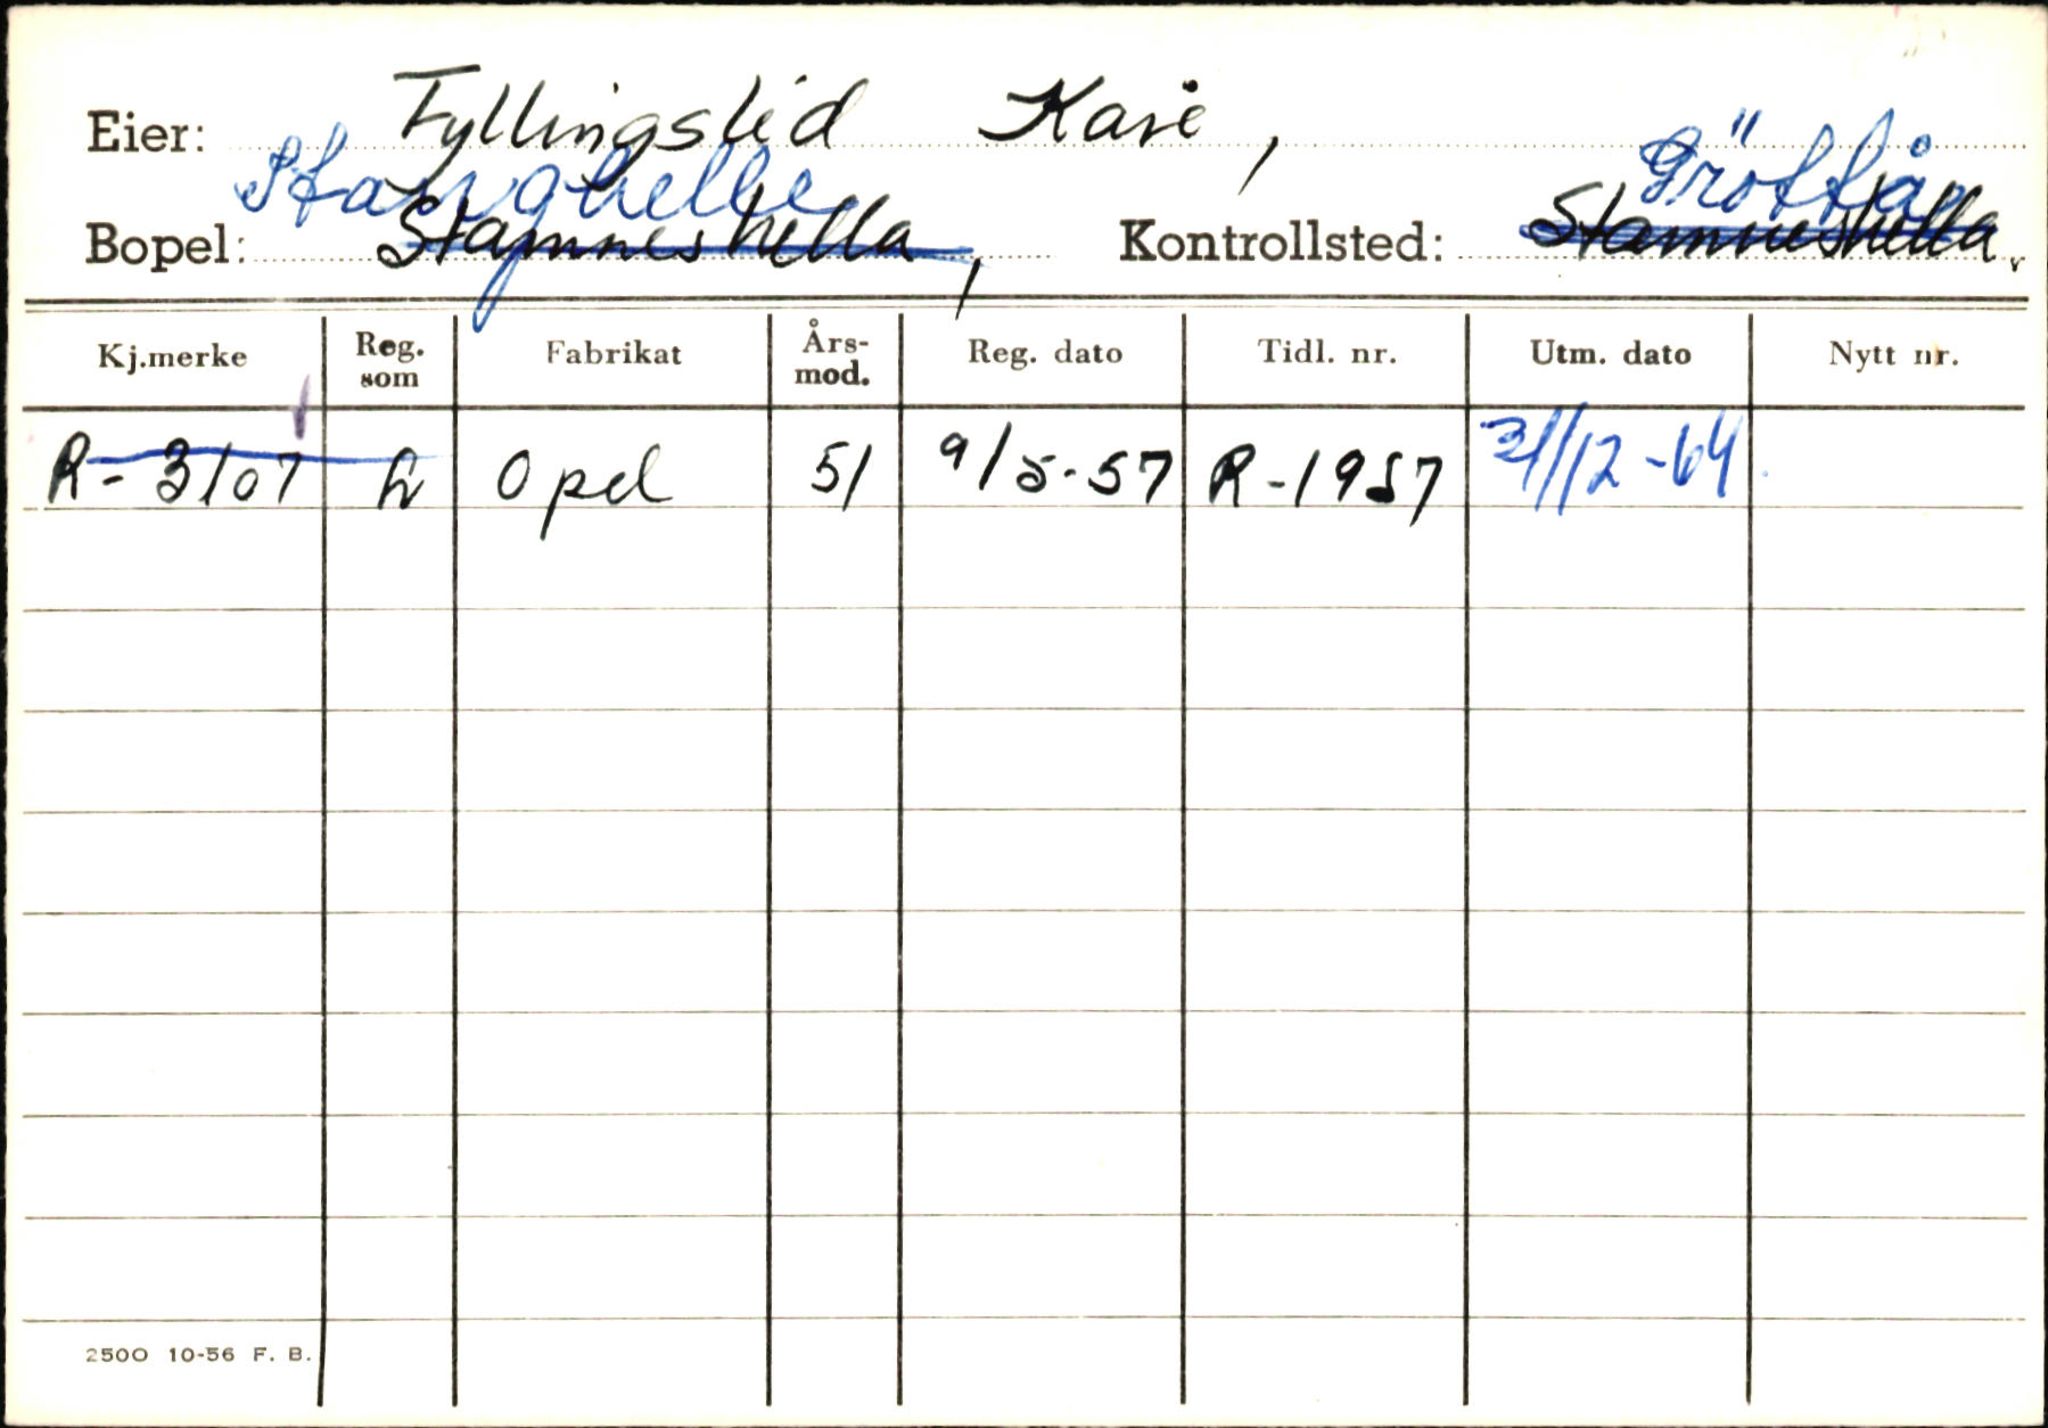 Eier: Fyllingslid Kåre,
Stanghelle Gröttås
Bopel: Stamneshella, Kontrollsted: Stamneshella.
Kj.merke Reg. som Fabrikat Års-mod. Reg. dato Tidl. nr. Utm. dato Nytt nr.
R-3107 Opel 51 9/5-57 R-1957 31/12-64
2500 10-56 F. B.